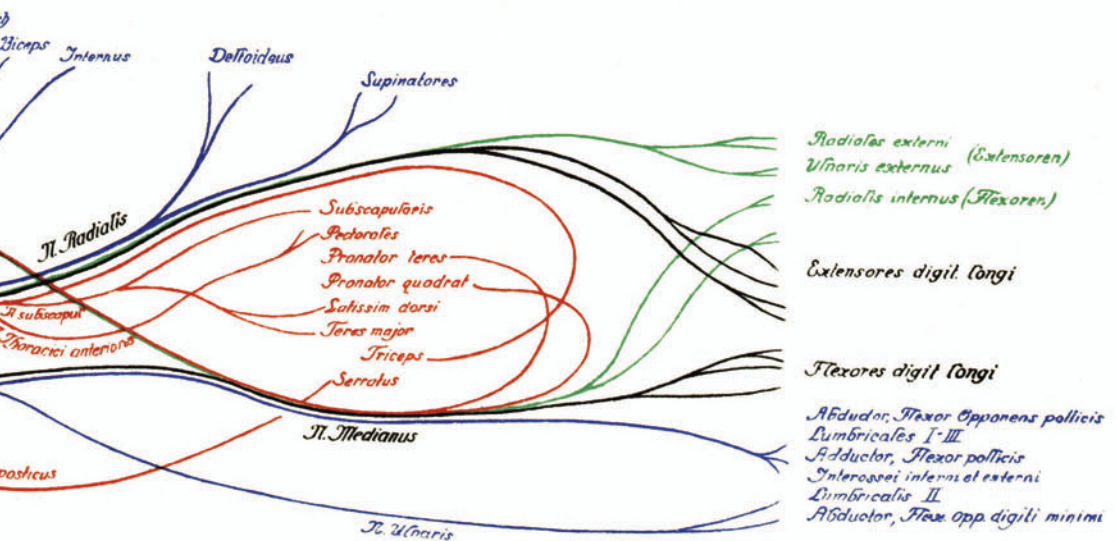 Biceps
Internus
Deltoideus
Supinatores
N. Radialis
Subscapularis
Pectorales
Pronator teres
Pronator quadrat
Latissim dorsi
Teres major
Triceps
Serratus
subscapul
Thoracici anteriores
N. Medianus
posticus
N. Ulnaris
Radiales externi (Extensoren)
Ulnaris externus
Radialis internus (Flexoren)
Extensores digit. longi
Flexores digit longi
Abductor, Flexor Opponens pollicis
Lumbricales I-III
Adductor, Flexor pollicis
Interossei interni et externi
Lumbricalis II
Abductor, Flex. opp. digiti minimi